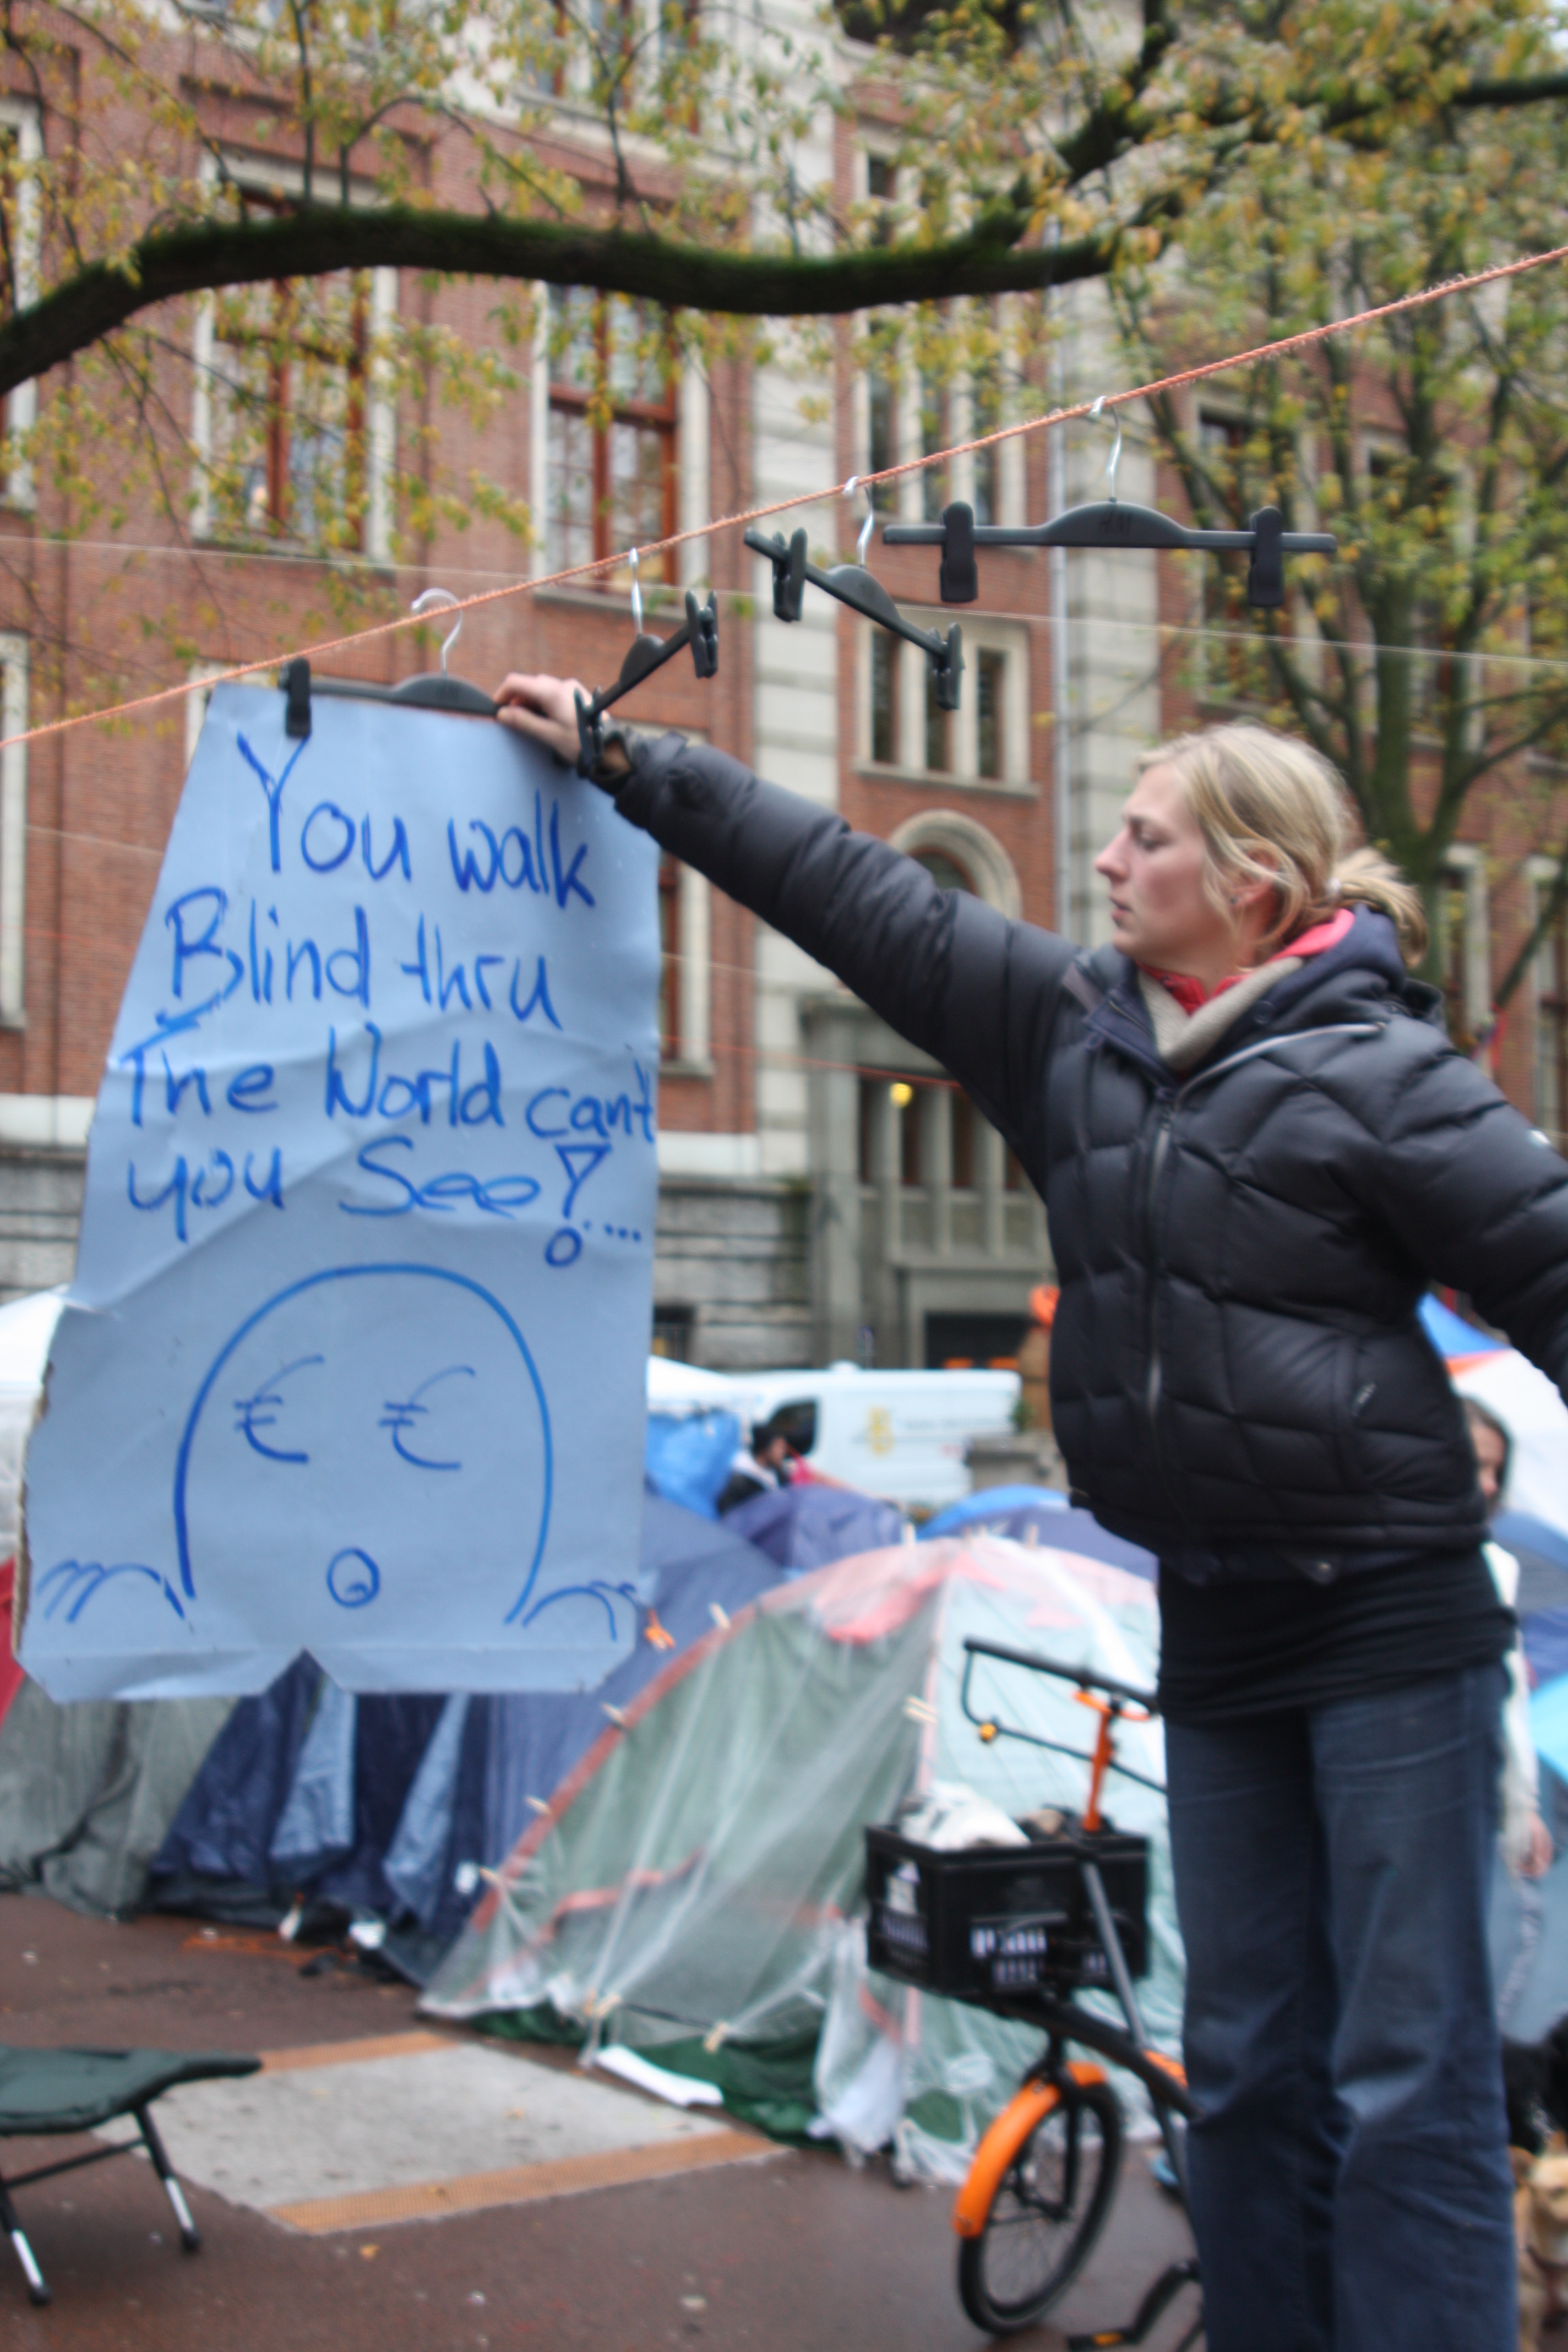 You walk
Blind thru
The World can't
you See?....
€ €
H&M